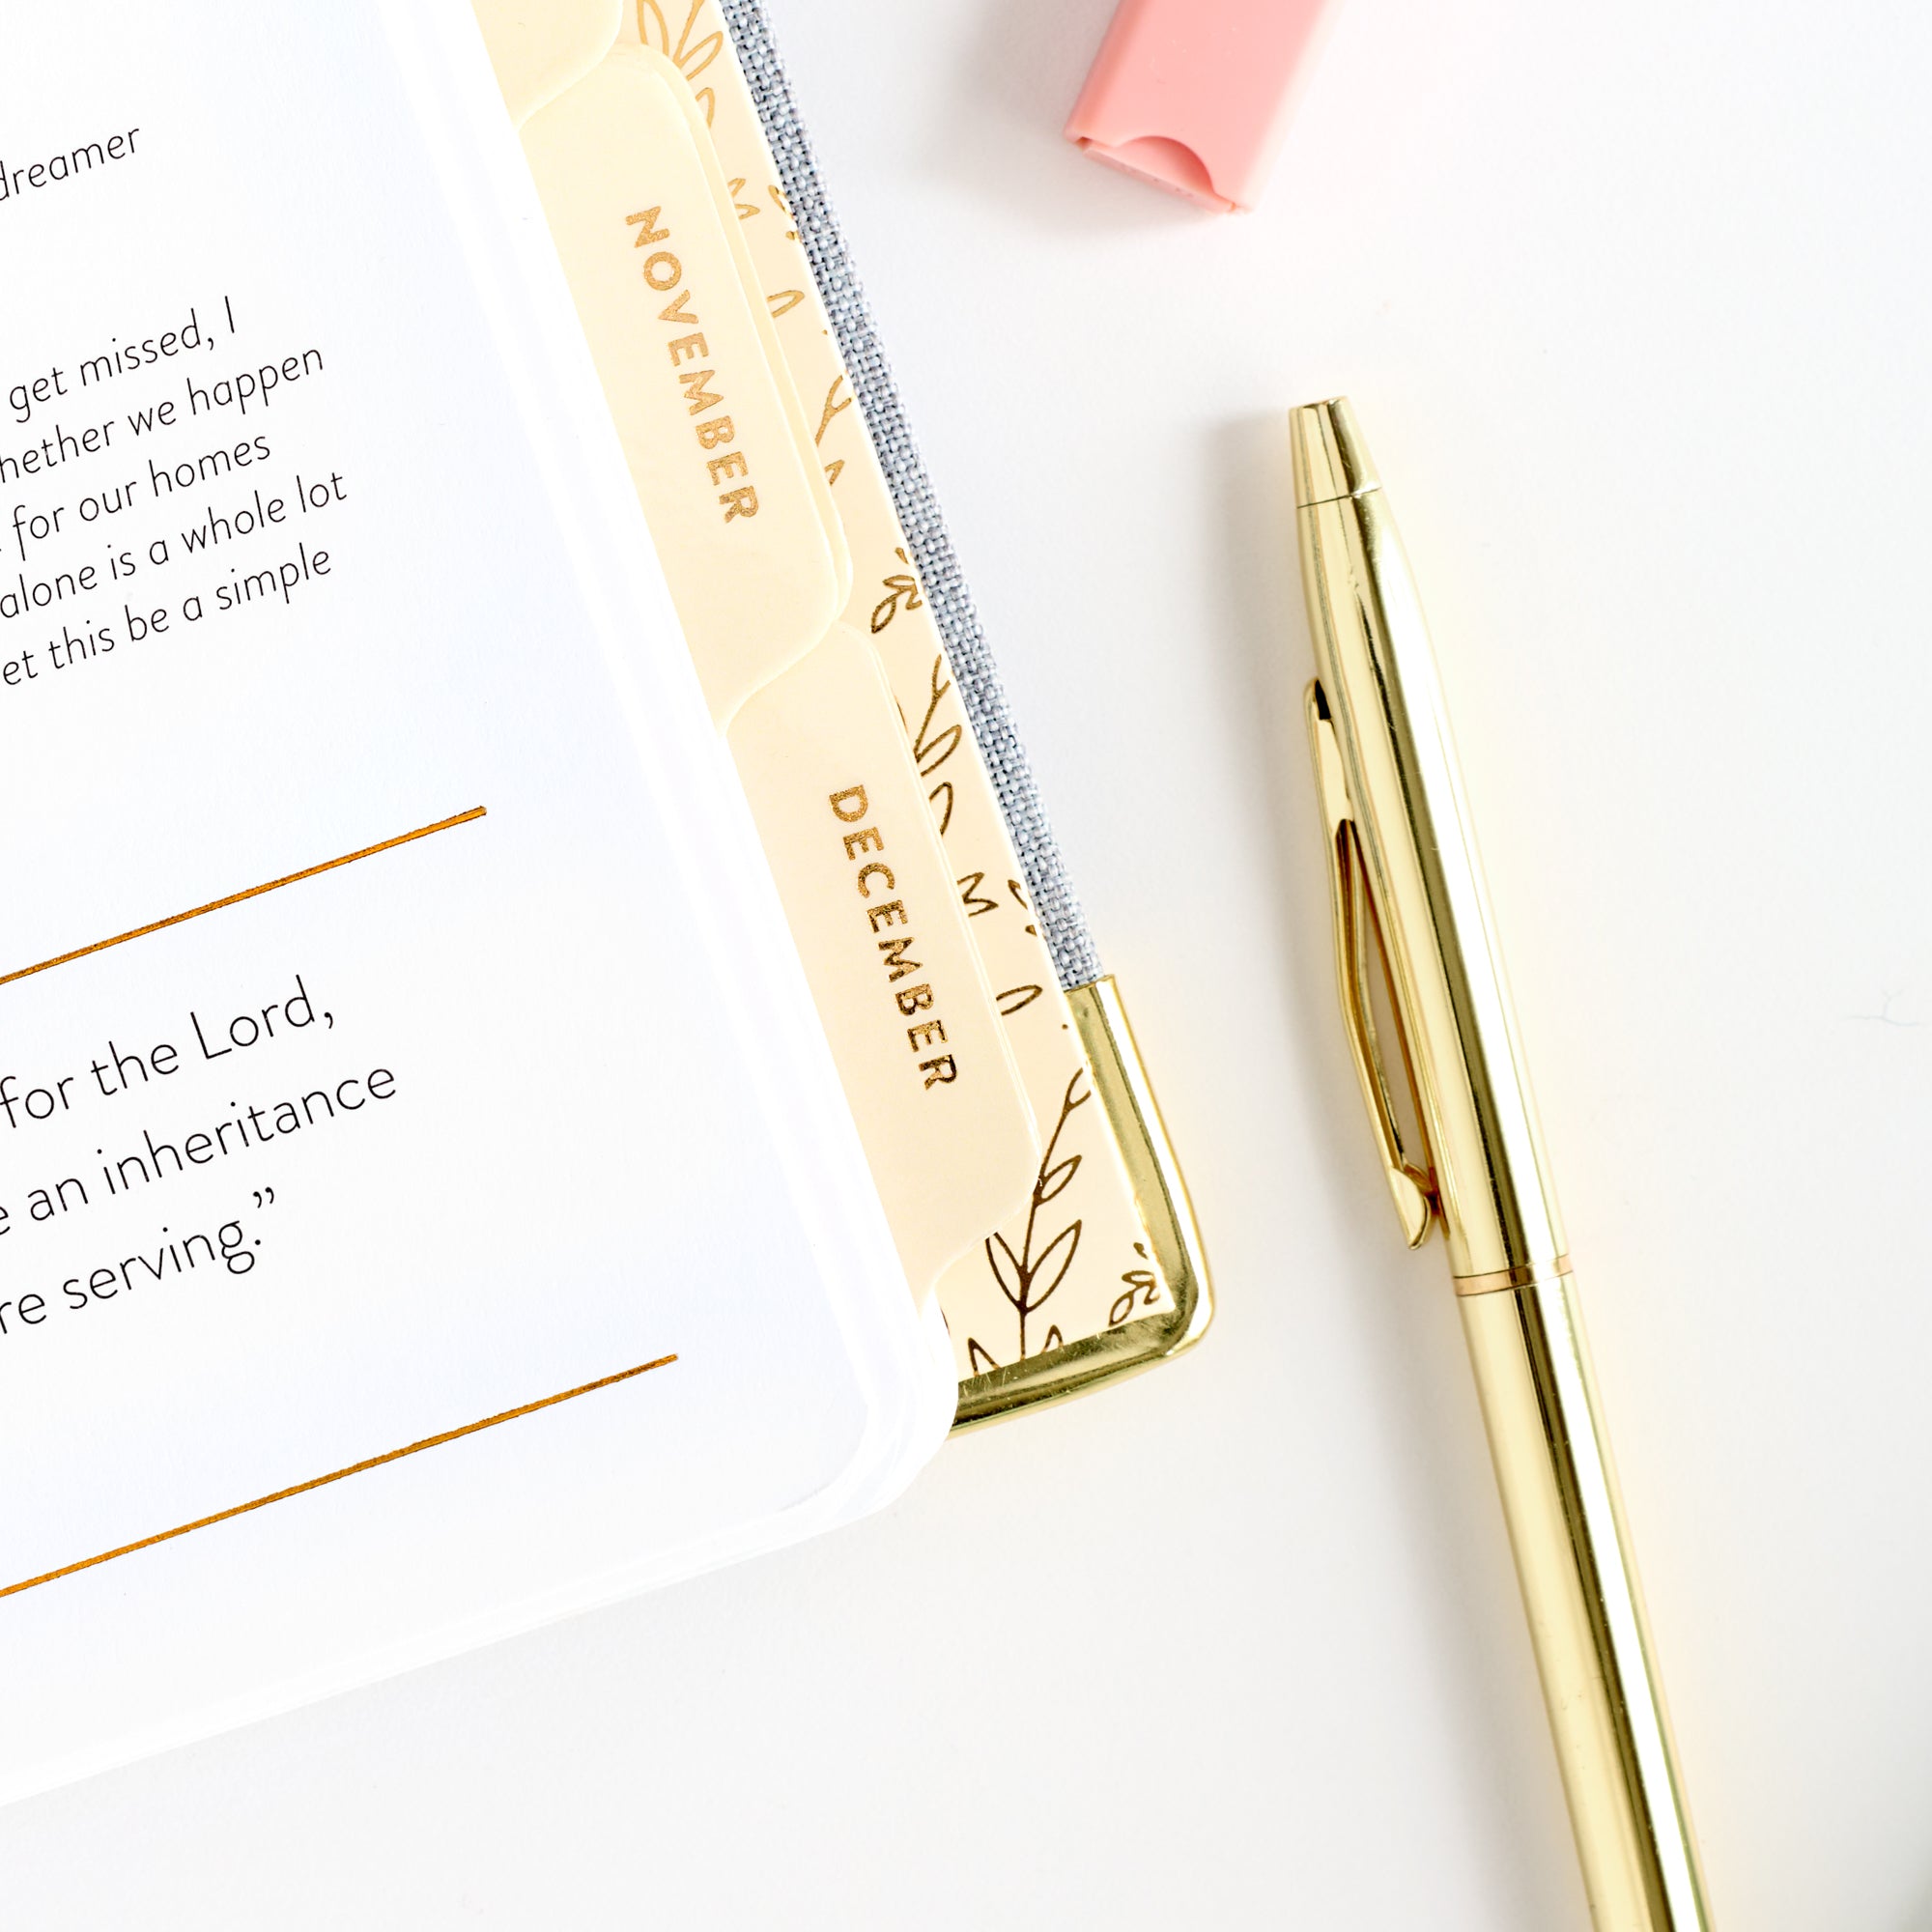 dreamer
get missed, I
hether we happen
for our homes
alone is a whole lot
et this be a simple
for the Lord,
e an inheritance
re serving.”
NOVEMBER
DECEMBER